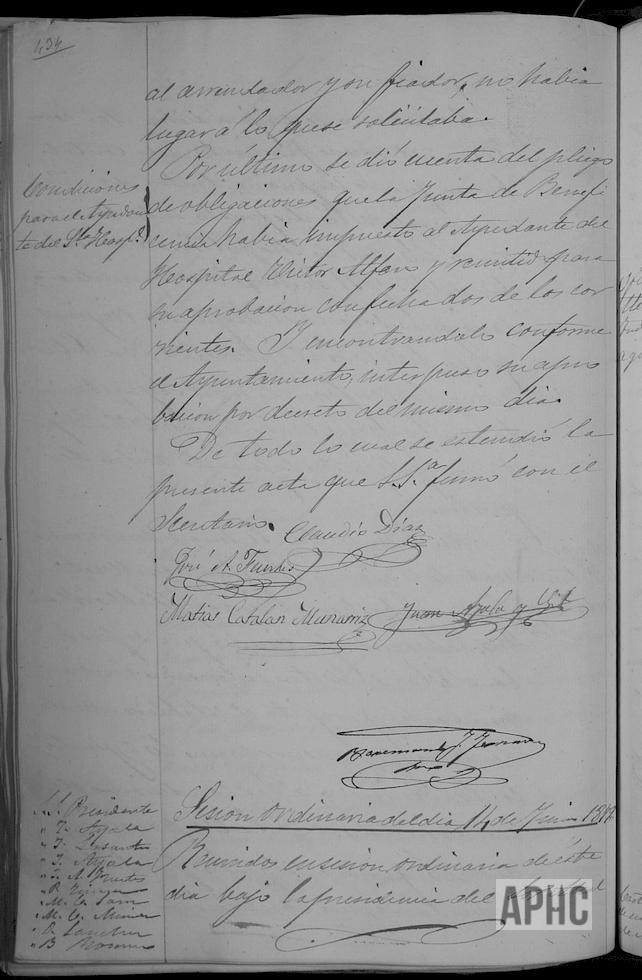 434
al arrendador y su fiador, no habia
lugar á lo que se solicitaba.
Por último se dió cuenta del pliego
de obligaciones que la Junta de Benefi
cencia habia impuesto al Ayudante del
Hospital Victor Alfaro y remitido para
su aprobacion con fecha dos de los cor
rientes. Y encontrandolo conforme
el Ayuntamiento, interpuso su apro
bacion por decreto del mismo dia.
De todo lo cual se estendió la
presente acta que S.Sª. firmó con el
Secretario.
Condiciones
para el Ayudan
te del Sto. Hospl.
Claudio Díaz
José A. Fuertes
Matias Catalan Munarriz
Juan Ayala y
Sesion ordinaria del dia 14 de Junio
Reunidos en sesion ordinaria de éste
dia bajo la presidencia del
S. Presidente
" Ayala
" Ayala
" A. Fuertes
APHC